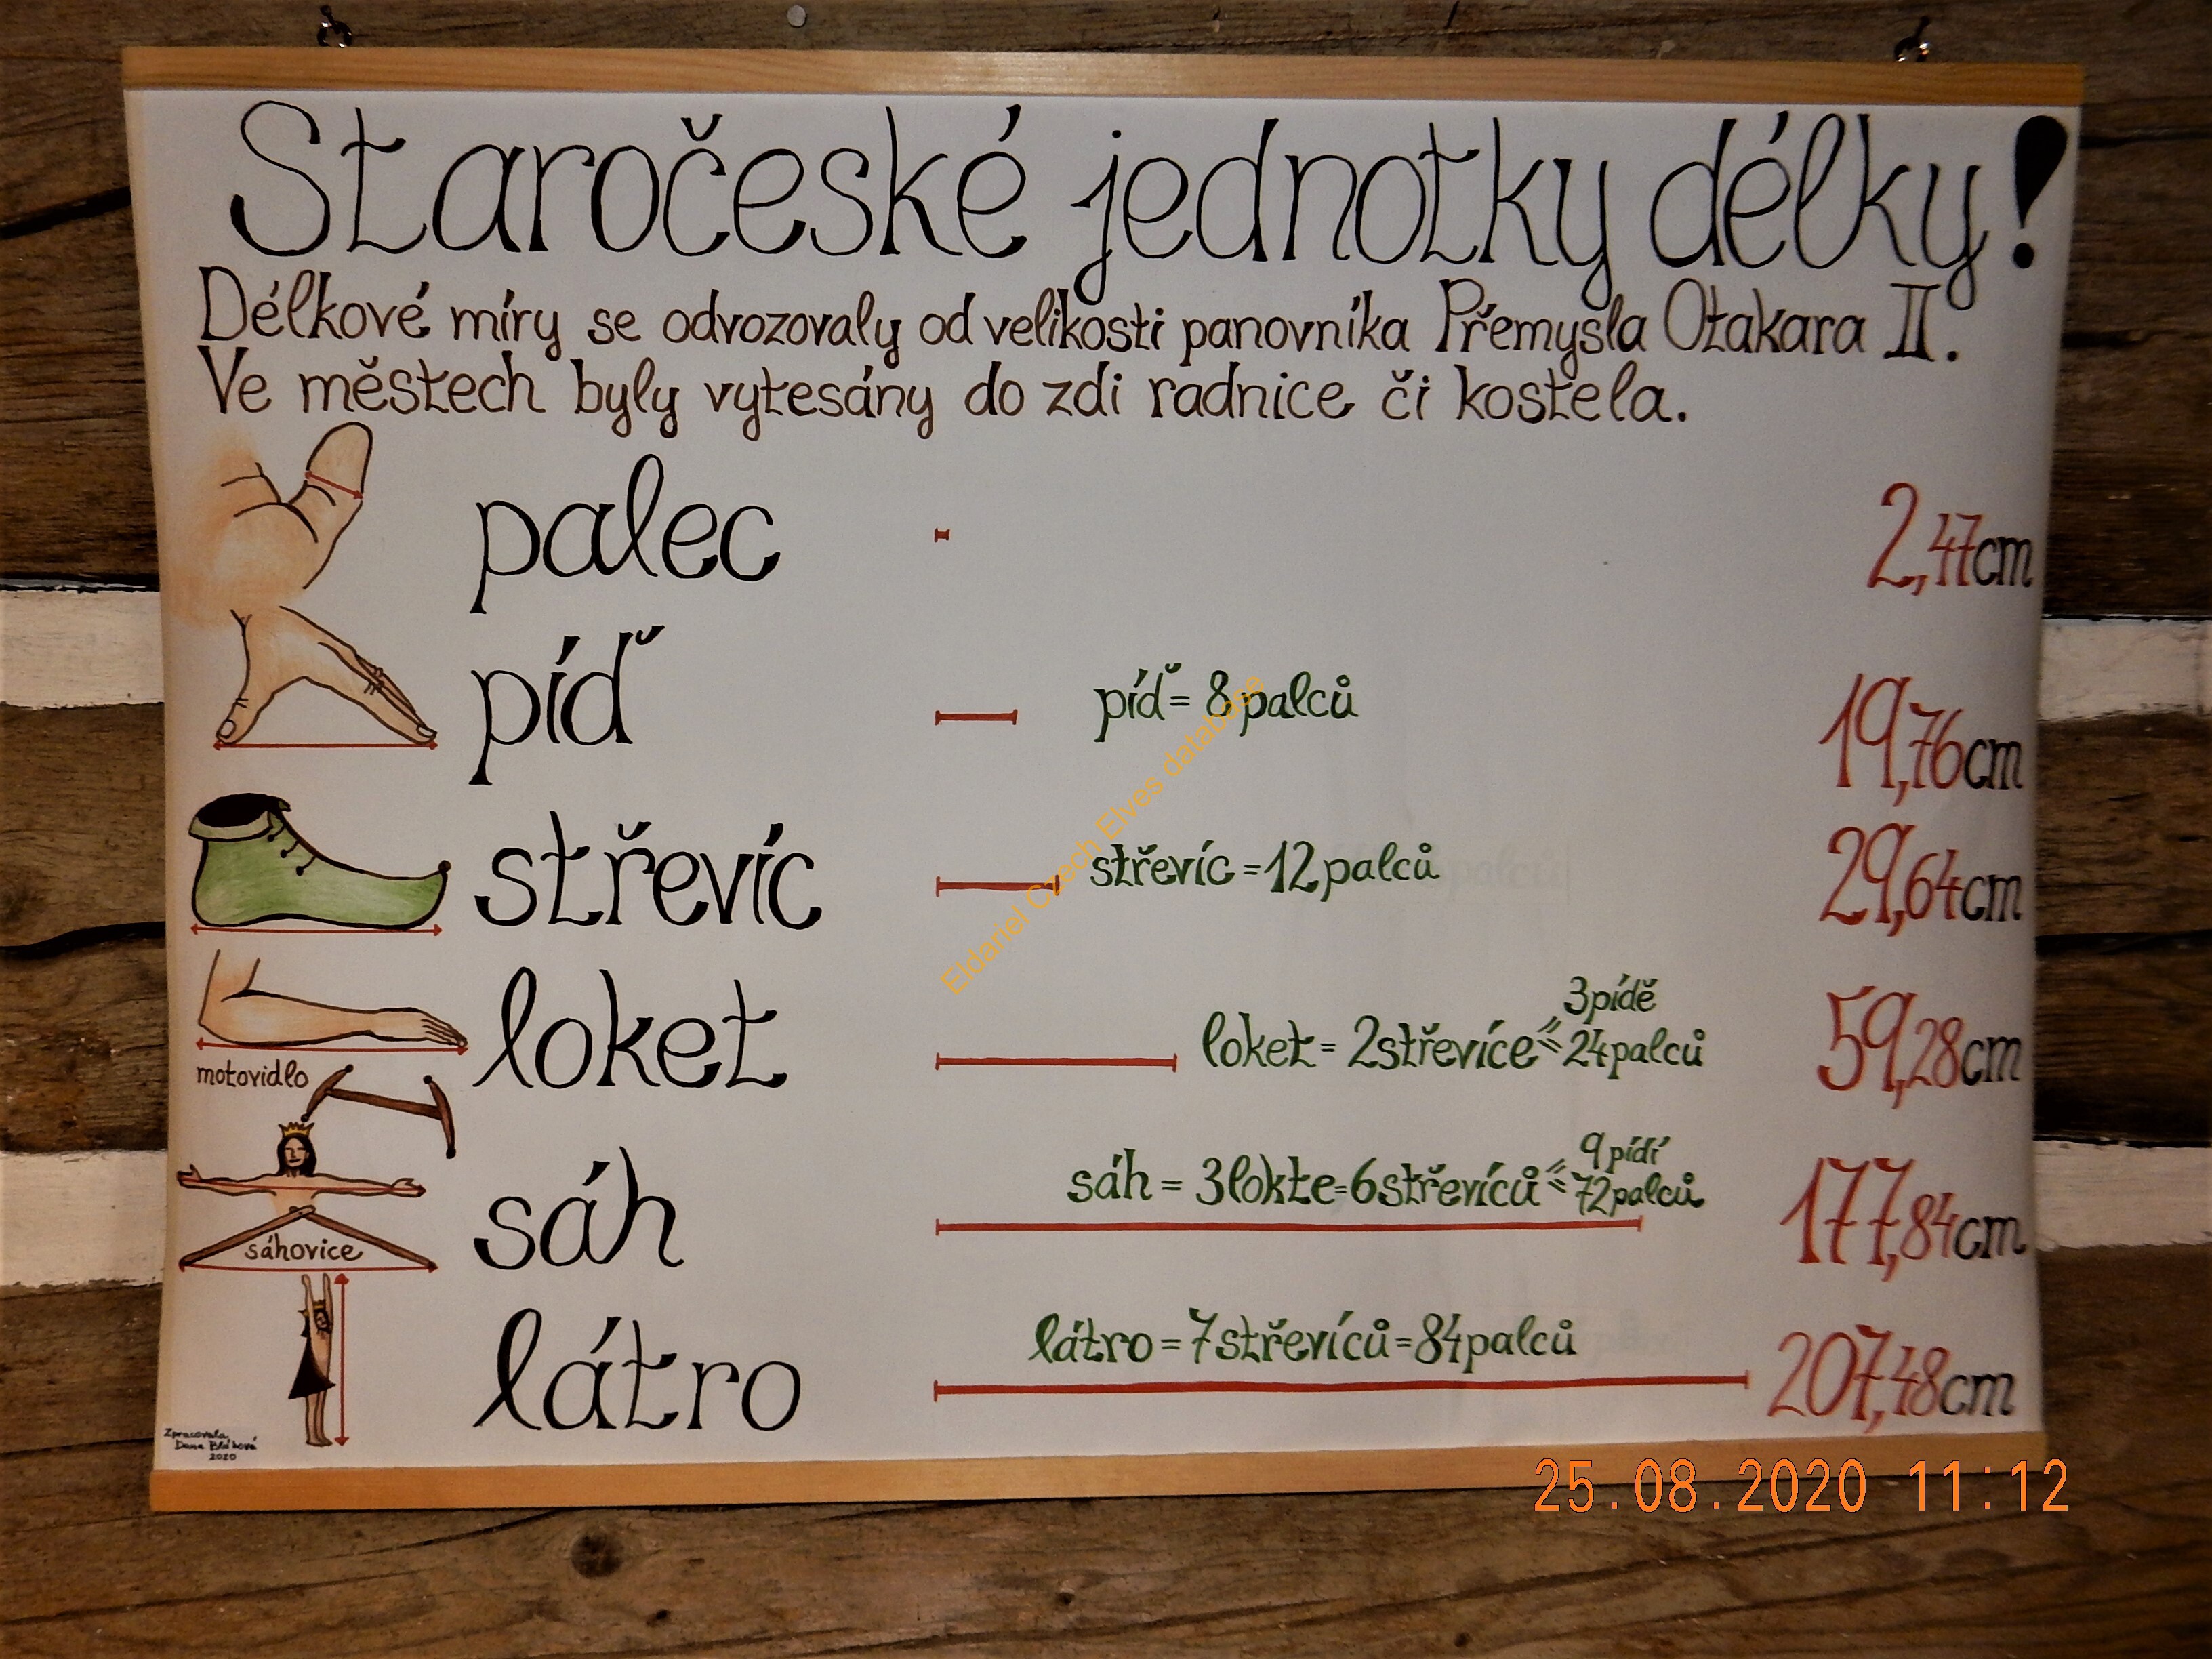 Staročeské jednotky délky!
Délkové míry se odvozovaly od velikosti panovníka Přemysla Otakara II.
Ve městech byly vytesány do zdi radnice či kostela.
palec 2,47cm
píď píď = 8palců 19,76cm
střevíc střevíc = 12palců 29,64cm
3pídě
loket loket = 2střevíce = 24palců 59,28cm
motovidlo
9pídí
sáh sáh = 3lokte = 6střevíců = 72palců 177,84cm
sáhovice
látro látro = 7střevíců = 84palců 207,48cm
Zpracovala
Dana Bláhová
2020
Eldariel Czech Elves database
25.08.2020 11:12